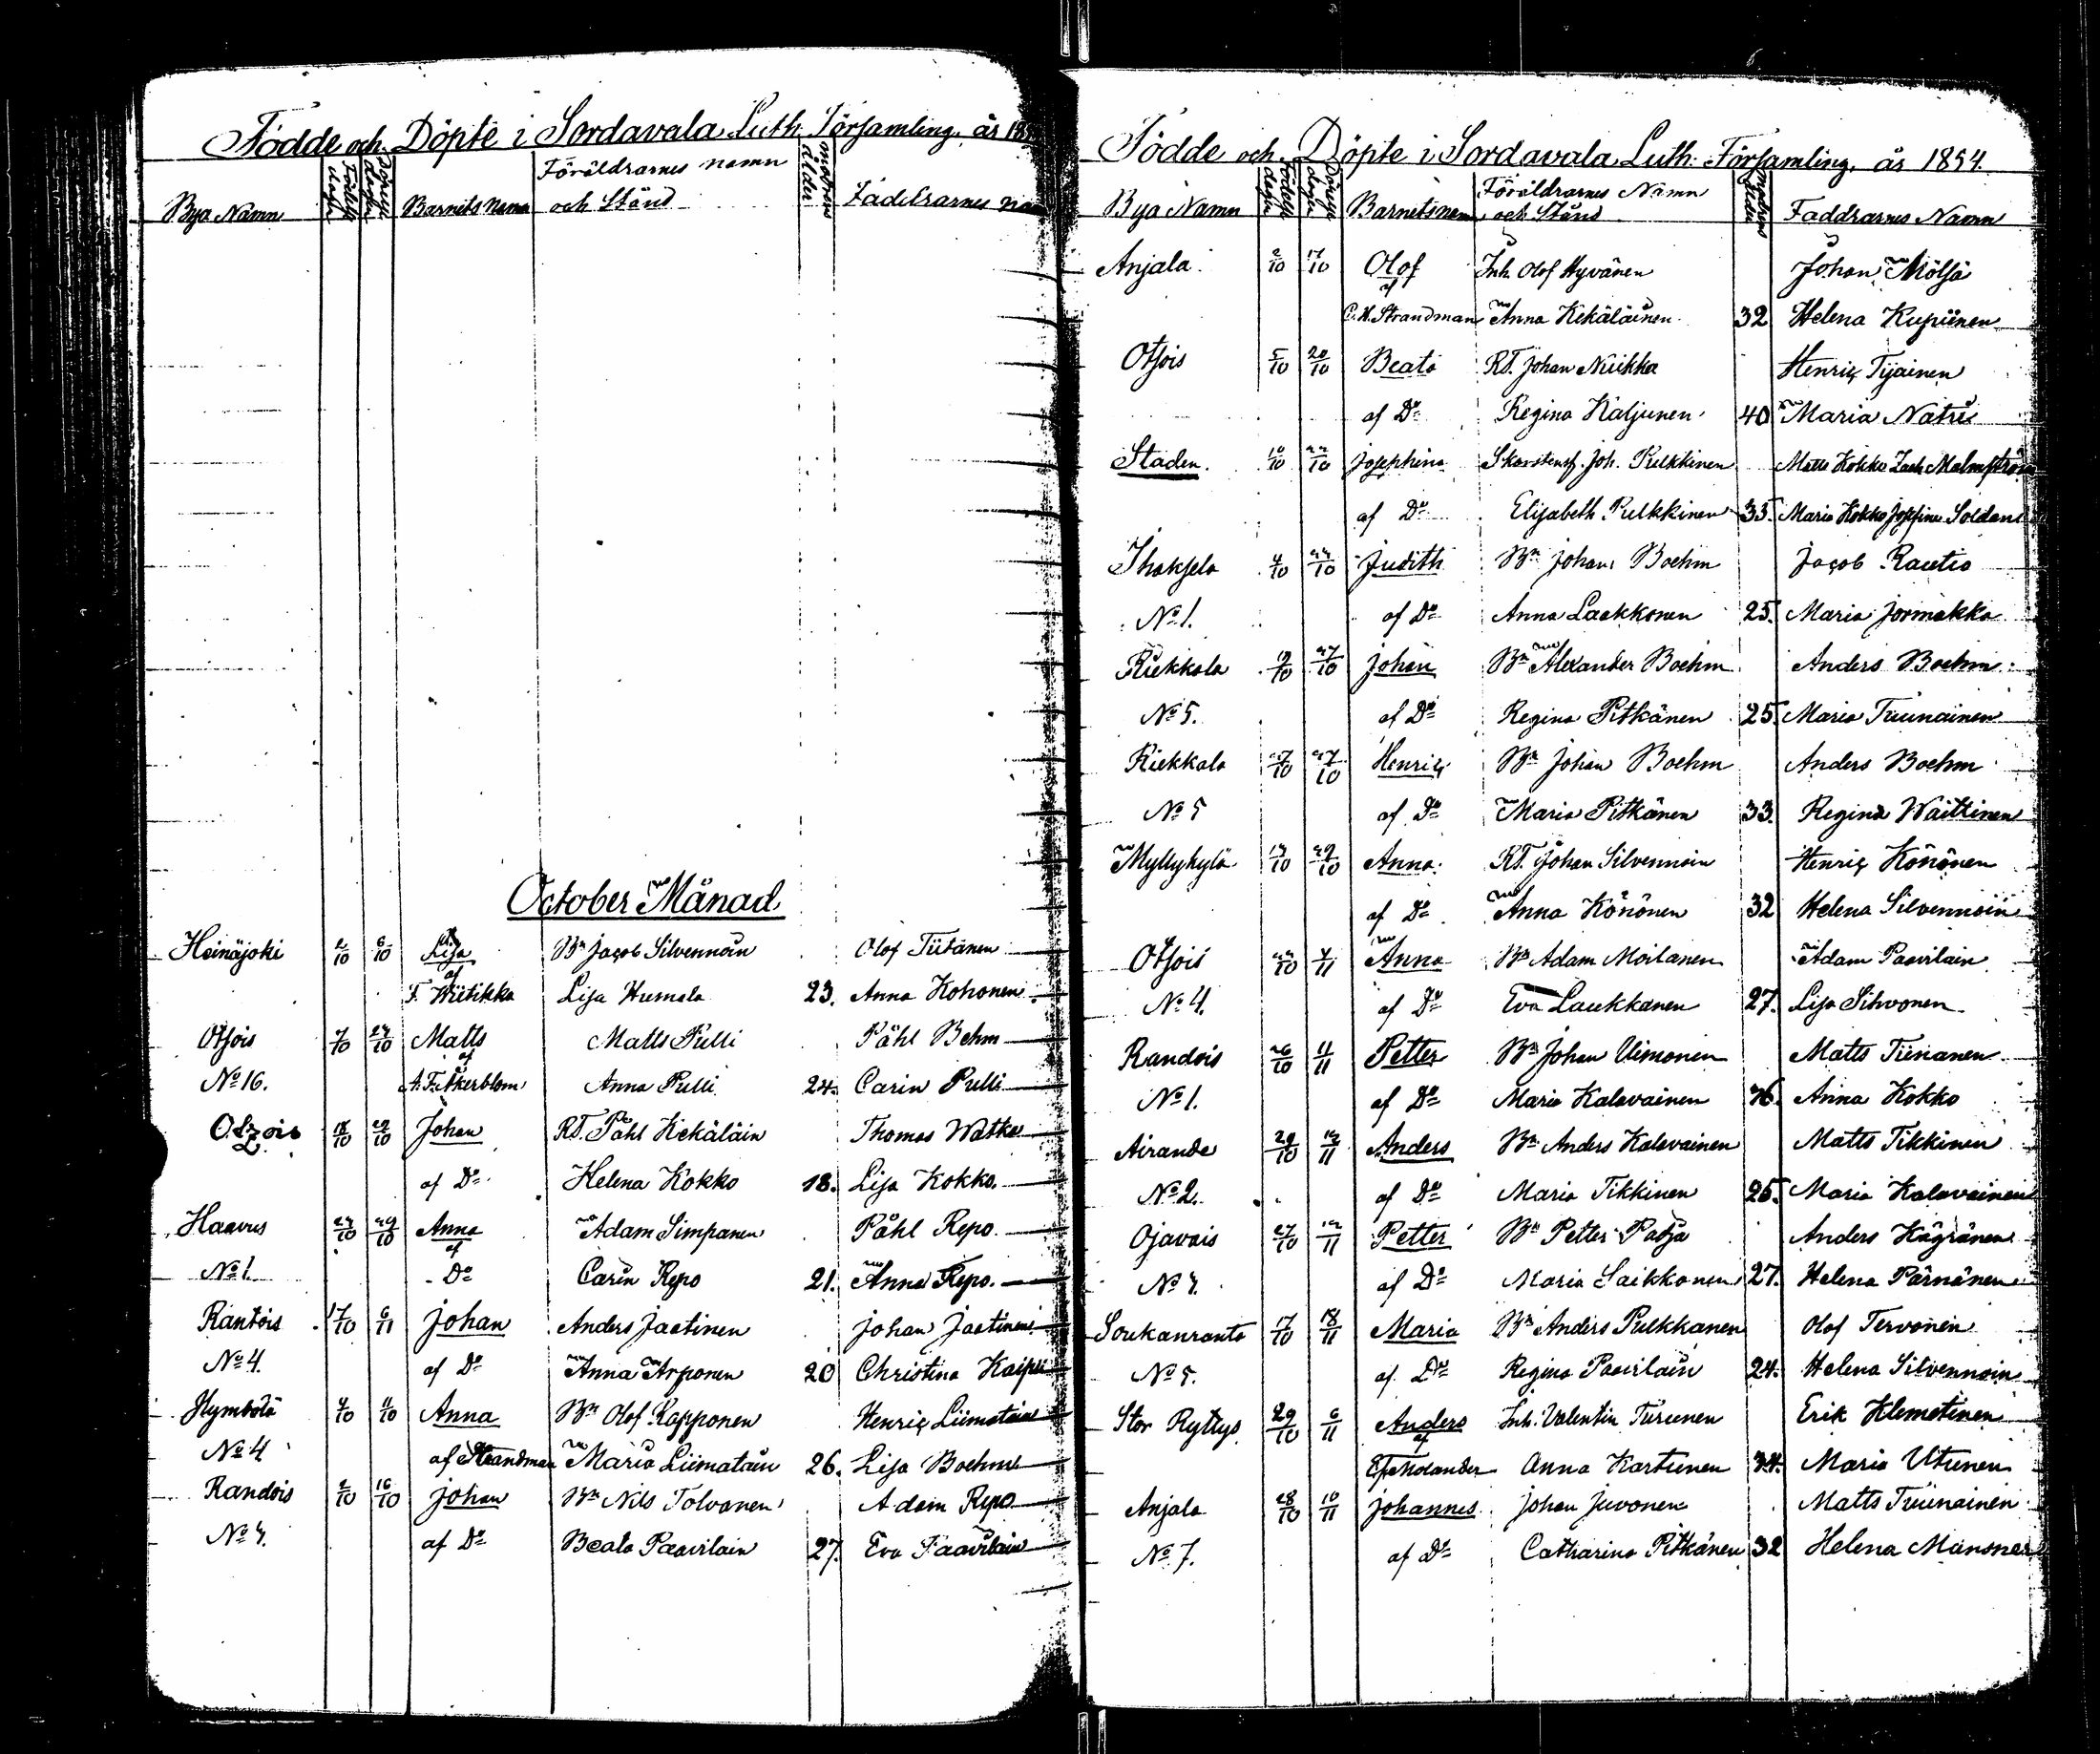 Födde och Döpte i Sordavala Luth. Församling, år 18
Bya Namn Födelse dagen Döpelse dagen Barnets Namn Föräldrarnes namn och Stånd Modrens ålder Faddrarnes Na
October Månad
Heinäjoki 2/10 6/10 Lisa Bn Jacob Silvennoin Olof Tiitanen
af F. Wiitikka Lisa Humala 23. Anna Kohonen
Otsois 7/10 24/10 Matts Matts Pulli Påhl Behm
No 16. af A.F. Åkerblom Anna Pulli 24. Carin Pulli
Otsois 18/10 29/10 Johan RT. Påhl Kekäläin Thomas Watka
af Do Helena Kokko 18. Lisa Kokko.
Haavus 24/10 29/10 Anna Adam Simpanen Påhl Repo
No 1. af Do Carin Repo 21. Anna Repo.
Rantois 17/10 6/11 Johan Anders Jaatinen Johan Jaatinen
No 4. af Do Anna Arponen 20 Christina Kaipi
Hymbölä 4/10 11/10 Anna Bn Olof Kapponen Henric Liimatain
No 4 af Strandman Maria Liimatain 26. Lisa Boehm
Randois 2/10 16/10 Johan Bn Nils Tolvanen Adam Repo
No 4. af Do Beata Paavilain 27. Eva Paavilain
Födde och Döpte i Sordavala Luth. Församling, år 1854.
Bya Namn Födelse dagen Döpelse dagen Barnets nam Föräldrarnes Namn och Stånd Modrens ålder Faddrarnes Namn
Anjala 2/10 17/10 Olof Inh. Olof Hyvänen Johan Mölsä
af C.H. Strandman Anna Kekäläinen 32 Helena Kupiinen
Otsois 5/10 20/10 Beata RT. Johan Niikka Henric Tijainen
af Do Regina Kaljunen 40 Maria Natri
Staden. 10/10 22/10 Josephina Skorstensf. Joh. Pulkkinen Matts Kokko Zach Malmström
af Do Elisabeth Pulkkinen 33. Maria Kokko Josefina Soldan
Ihaksela 4/10 24/10 Judith Bn Johan Boehm Jacob Rautio
No 1. af Do Anna Laakkonen 25. Maria Jormakka
Riekkala 19/10 27/10 Johan Bn Alexander Boehm Anders Boehm
No 5. af Do Regina Pitkänen 25. Maria Tiiinainen
Riekkala 27/10 27/10 Henric Bn Johan Boehm Anders Boehm
No 5 af Do Maria Pitkänen 33. Regina Waittinen
Myllykylä 19/10 29/10 Anna RT. Johan Silvennoin Henric Könönen
af Do Anna Könönen 32 Helena Silvennoin
Otsois 22/10 4/11 Anna Bn Adam Moilanen Adam Paavilain
No 4. af Do Eva Laukkanen 27. Lisa Sihvonen
Randois 26/10 4/11 Petter Bn Johan Uimonen Matts Tiinanen
No 1. af Do Maria Kalavainen 36. Anna Kokko
Airanda 29/10 12/11 Anders Bn Anders Kalavainen Matts Tikkinen
No 2. af Do Maria Tikkinen 25. Maria Kalavainen
Ojavois 27/10 12/11 Petter Bn Petter Patja Anders Kägränen
No 4. af Do Maria Saikkonen 27. Helena Pärnänen
Soukanranta 17/10 18/11 Maria Bn Anders Pulkkanen Olof Tervonen
No 5. af Do Regina Paavilain 24. Helena Silvennoin
Stor Ryttys 29/10 6/11 Anders Inh. Valentin Turunen Erik Klemetinen
af Molander Anna Karttunen 34. Maria Utunen
Anjala 28/10 10/11 Johannes Johan Juvonen Matts Tiiinainen
No 7. af Do Catharina Pitkänen 32 Helena Mansner